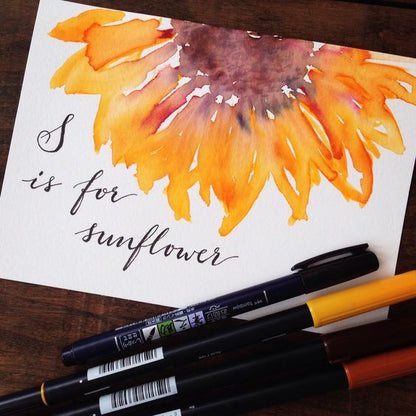 S
is for
sunflower